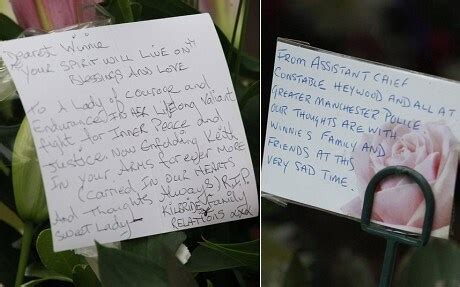 Dearest Winnie
"Your spirit will live on"
Blessings and love
To A Lady of courage and
Endurance, in her lifelong valiant
fight for inner peace and
Justice. Now enfolding Keith
in your arms forever more
(carried in our hearts
And thoughts always) R.I.P.
sweet Lady
Kilbride family
Relations xxx
From Assistant Chief
Constable Heywood and all at
Greater Manchester Police
our thoughts are with
Winnie's family and
friends at this
very sad time.